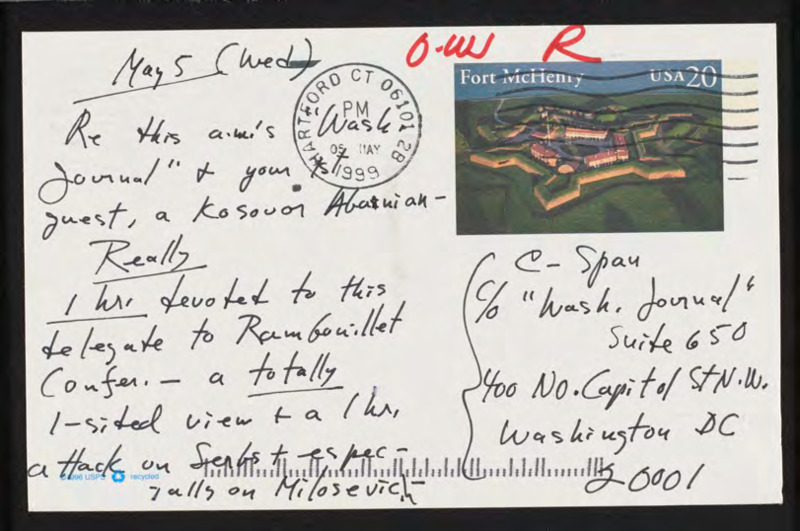 May 5 (Wed)
O-W R
Fort McHenry USA 20
HARTFORD CT 06101 2B
PM
05 MAY
1999
Re this a.m.'s "Wash
Journal" & your 1st
guest, a Kosovor Abarnian-
Really
1 hr. devoted to this
delegate to Rambouillet
Confer. — a totally
1-sided view & a 1 hr.
attack on Serbs & espec-
ially on Milosevich
C-Span
c/o "Wash. Journal"
Suite 650
400 No. Capitol St N.W.
Washington DC
20001
©1996 USPS recycled